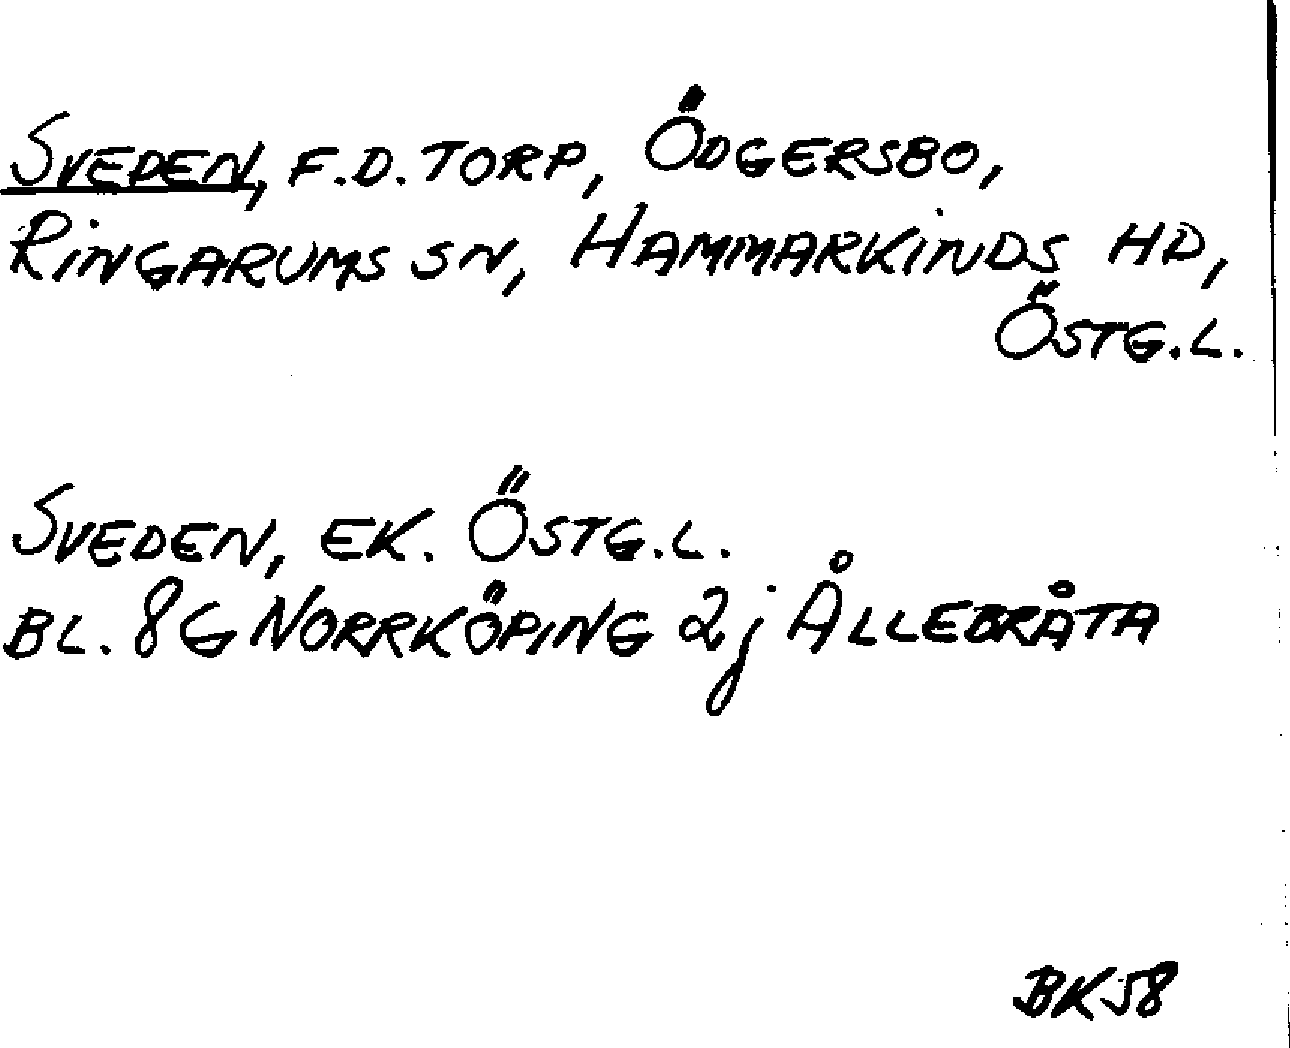 SVEDEN, F.D. TORP, ÖDGERSBO,
RINGARUMS SN, HAMMARKINDS HD,
ÖSTG.L.
SVEDEN, EK. ÖSTG.L.
BL. 8G NORRKÖPING 2j ÅLLEBRÅTA
BK58